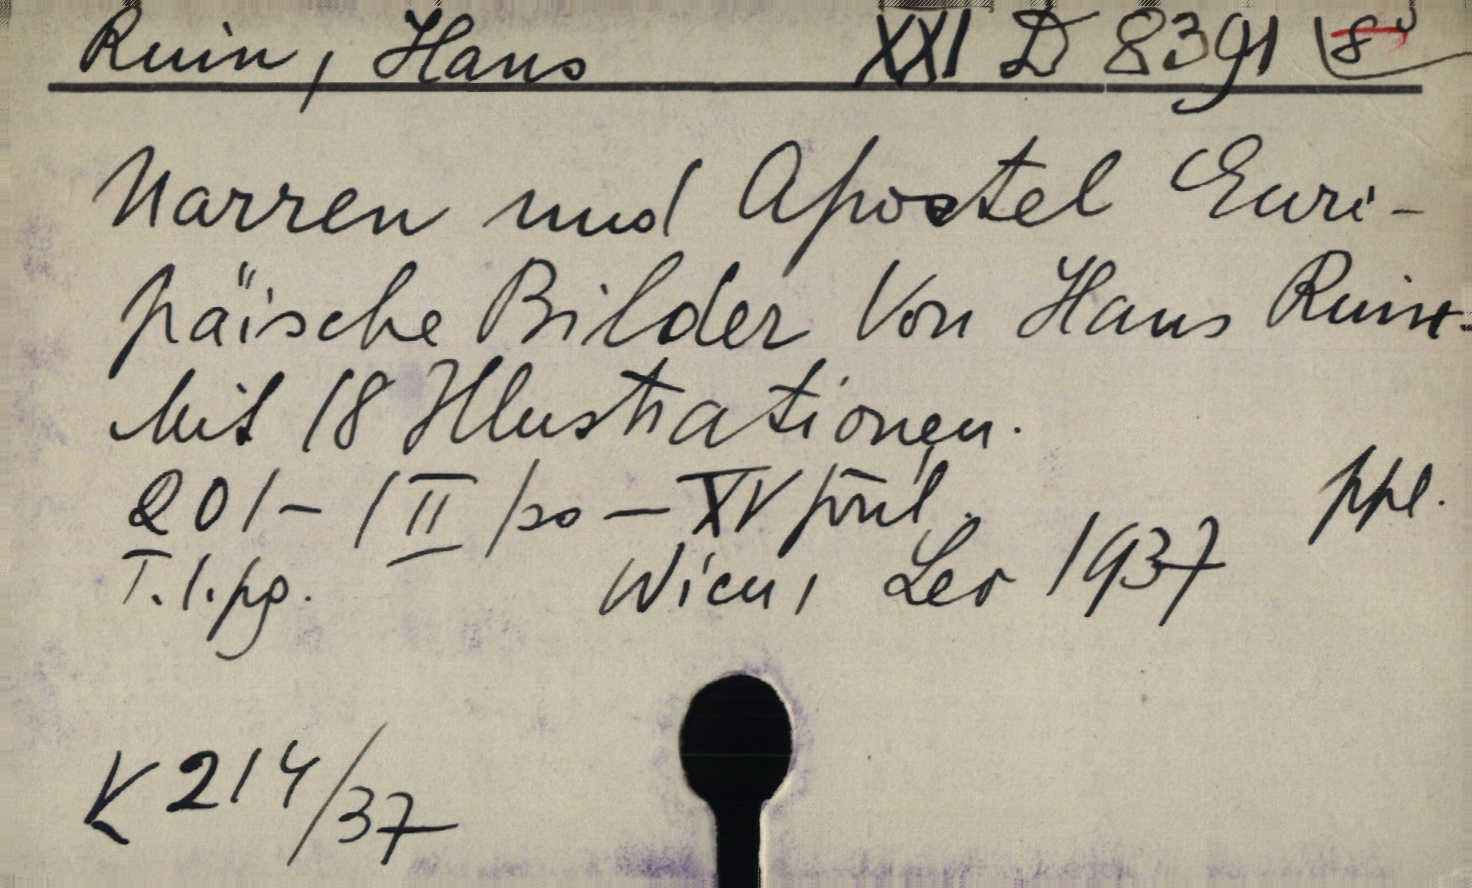 Ruin, Hans XXI D 8391 8°
Narren und Apostel Euri-
päische Bilder Von Hans Ruin.
Mit 18 Illustrationen.
201 - 1 II / so - XV příl. ppl.
T. l. pg. Wien, Leo 1937
K 214/37